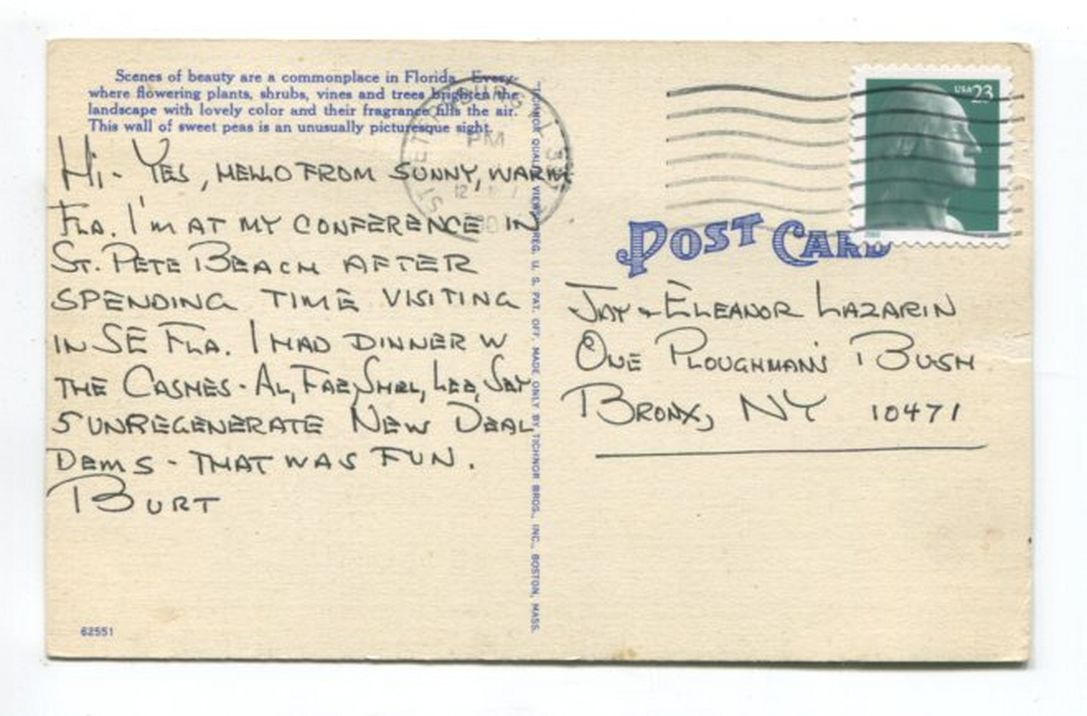 Scenes of beauty are a commonplace in Florida. Every-
where flowering plants, shrubs, vines and trees brighten the
landscape with lovely color and their fragrance fills the air.
This wall of sweet peas is an unusually picturesque sight.
HI - YES, HELLO FROM SUNNY, WARM
FLA. I'M AT MY CONFERENCE IN
ST. PETE BEACH AFTER
SPENDING TIME VISITING
IN SE FLA. I HAD DINNER W
THE CASHES - AL, FAE,
5 UNREGENERATE NEW DEAL
DEMS - THAT WAS FUN.
BURT
62551
"TICHNOR QUALITY VIEWS" REG. U. S. PAT. OFF. MADE ONLY BY TICHNOR BROS., INC., BOSTON, MASS.
ST PETERSBURG FL
PM
12
USA 23
POST CARD
JAY & ELEANOR LAZARIN
ONE PLOUGHMAN'S BUSH
BRONX, NY 10471